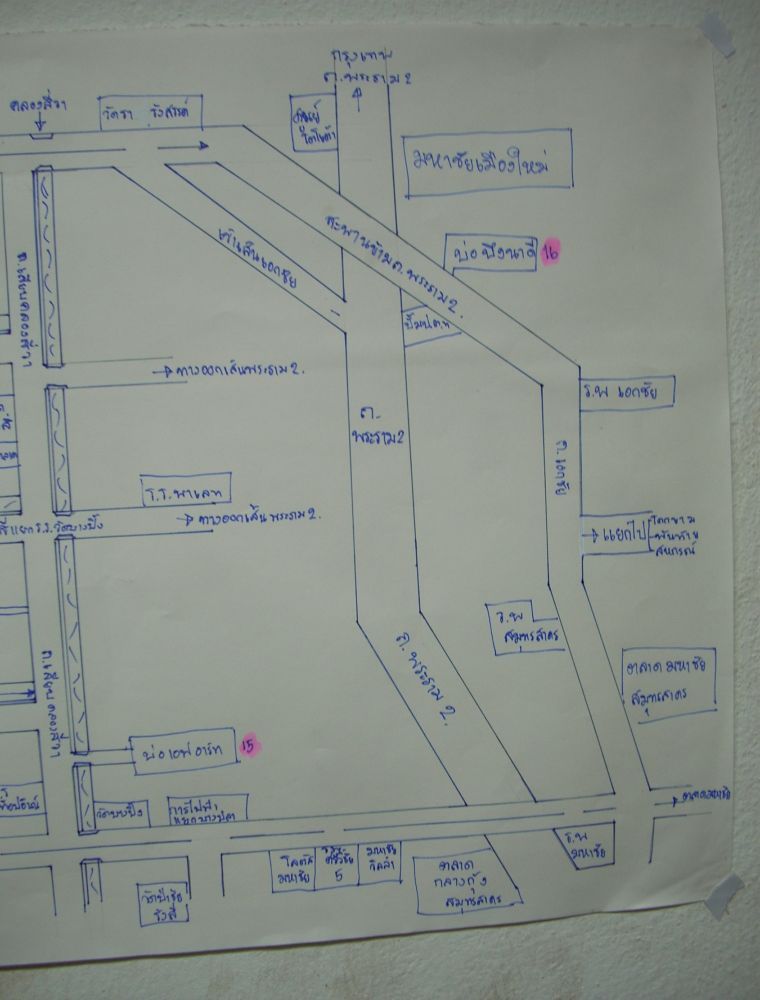 กรุงเทพ
ถ.พระราม 2
คลองสี่วา
วัดรา รังสรรค์
ศูนย์
โตโยต้า
มหาชัยเมืองใหม่
สะพานข้ามถ.พระราม 2.
บ่อบึงนาดี 16
เข้าเส้นเอกชัย
ปั๊มปตท
ถ.เลียบคลองสี่วา
ทางออกเส้นพระราม 2.
ร.พ เอกชัย
ถ.
พระราม 2
ถ.เอกชัย
ร.ร.พาเลท
สี่แยก ร.ร.วัดบางปิ้ง
ทางออกเส้นพระราม 2.
แยกไป
โคกขาม
พันท้าย
สหกรณ์
ร.พ
สมุทรสาคร
ถ.พระราม 2.
ถ.เลียบคลองสี่วา
ตลาดมหาชัย
สมุทรสาคร
บ่อเอฟอาร์ท 15
วัดบางปิ้ง
การไฟฟ้า
ตลาดมหาชัย
โลตัส
มหาชัย
5
มหาชัย
วิลล่า
ตลาด
กลางกุ้ง
สมุทรสาคร
ร.พ
มหาชัย
วัดป่าชัย
รังสี